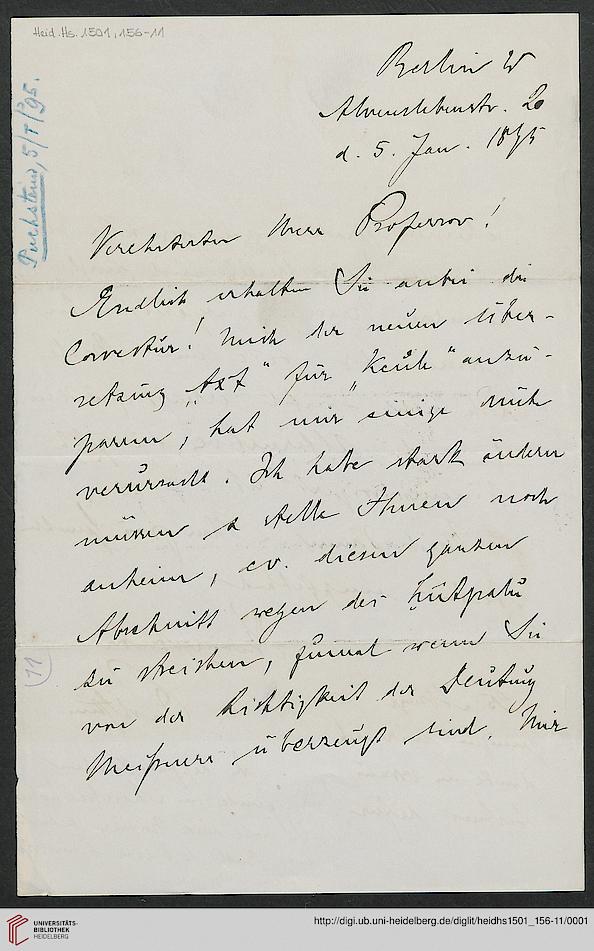 Heid. Hs. 1501, 156-11
Puchstein, 5/I/95.
Berlin W
Alvenslebenstr. 20
d. 5. Jan. 1895
Verehrtester Herr Professor!
Endlich erhalten Sie anbei die
Correctur! Mich der neuen Über-
setzung „Axt" für „Keule" anzu-
passen, hat mir einige Mühe
verursacht. Ich habe stark ändern
müssen & stelle Ihnen noch
anheim, ev. diesen ganzen
Abschnitt wegen des
zu streichen, zumal wenn Sie
von der Richtigkeit der Deutung
Meißners überzeugt sind. Mir
11
UNIVERSITÄTS-
BIBLIOTHEK
HEIDELBERG
http://digi.ub.uni-heidelberg.de/diglit/heidhs1501_156-11/0001